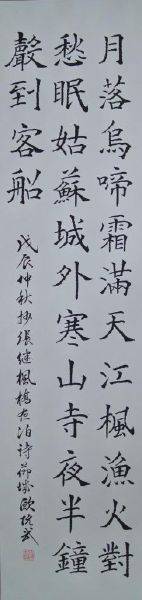 月落烏啼霜滿天江楓漁火對
愁眠姑蘇城外寒山寺夜半鐘
聲到客船
戊辰仲秋抄張繼楓橋夜泊詩